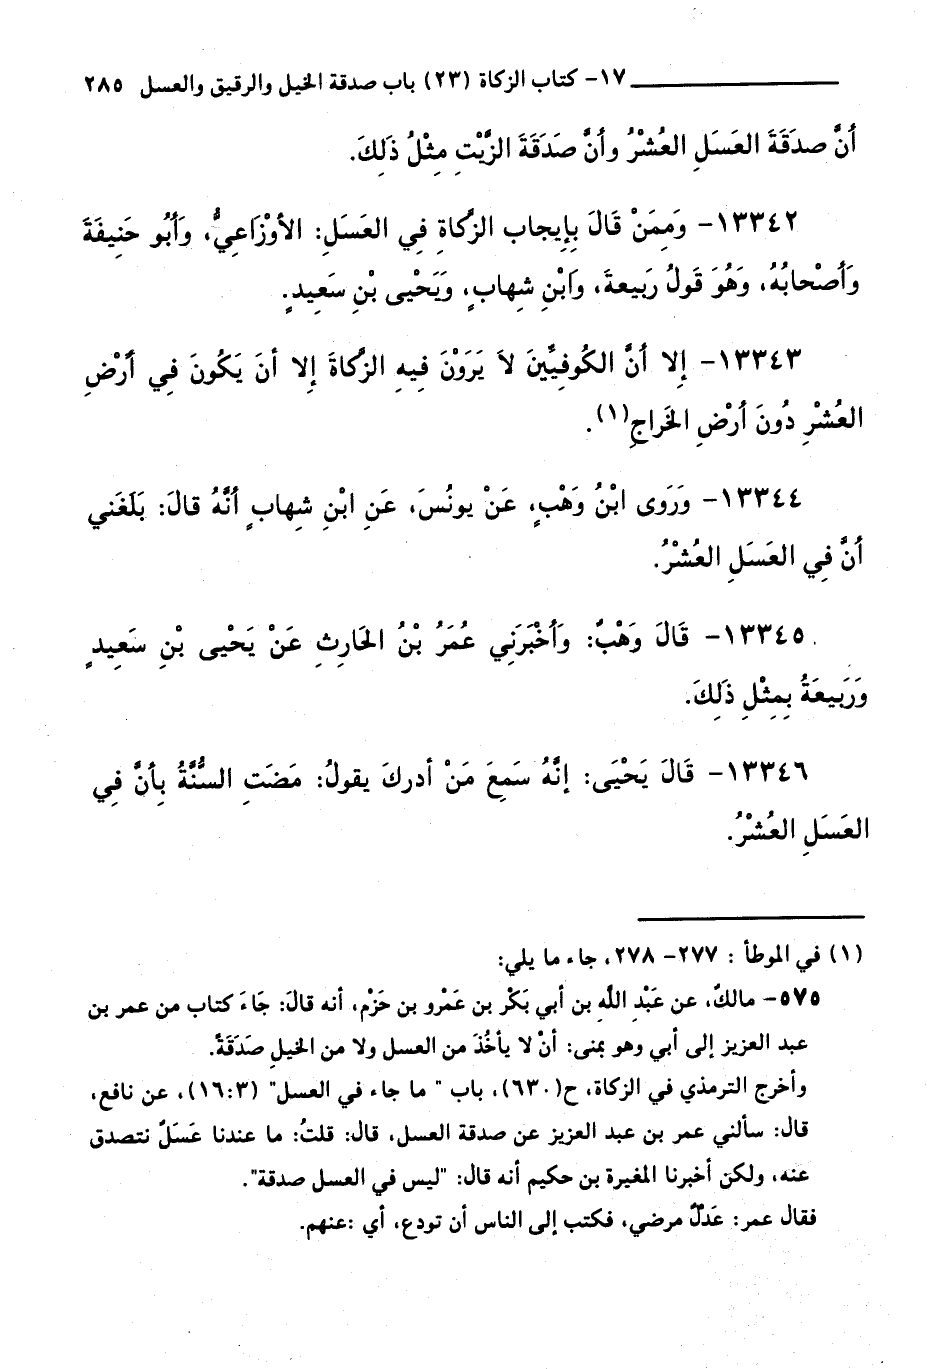 ١٧- كتاب الزكاة (٢٣) باب صدقة الخيل والرقيق والعسل ٢٨٥
أنَّ صدَقَةَ العَسَلِ العُشْرُ وأنَّ صَدَقَةَ الزَّيْتِ مِثْلُ ذَلِكَ.
١٣٣٤٢- وَمِمَنْ قَالَ بِإِيجاب الزَّكاةِ فِي العَسَلِ: الأوْزَاعِيُّ، وَأَبُو حَنِيفَةَ
وَأصْحابُهُ، وَهُوَ قَولُ رَبيعةَ، وَابْنِ شهابٍ، وَيَحْيى بْنِ سَعِيدٍ.
١٣٣٤٣- إِلا أنَّ الكُوفيِّينَ لاَ يَرَوْنَ فيهِ الزَّكاةَ إِلا أنَ يَكُونَ فِي أَرْضِ
العُشْرِ دُونَ أرْضِ الخَراجِ(١).
١٣٣٤٤- وَرَوى ابْنُ وَهْبٍ، عَنْ يونُسَ، عَنِ ابْنِ شِهابٍ أنَّهُ قالَ: بَلَغَني
أنَّ فِي العَسَلِ العُشْرُ.
١٣٣٤٥- قَالَ وَهْبٌ: وَأخْبَرَنِي عُمَرُ بْنُ الحَارِثِ عَنْ يَحْيى بْنِ سَعِيدٍ
وَرَبيعَةُ بِمِثْلِ ذَلِكَ.
١٣٣٤٦- قَالَ يَحْيَى: إنَّهُ سَمِعَ مَنْ أدركَ يقولُ: مَضَتِ السُّنَّةُ بِأنَّ فِي
العَسَلِ العُشْرُ.
(١) في الموطأ : ٢٧٧- ٢٧٨، جاء ما يلي:
٥٧٥- مالكٌ، عن عَبْدِ اللَّهِ بن أبي بَكْر بن عَمْرو بن حَزْم، أنه قالَ: جَاءَ كتاب من عمر بن
عبد العزيز إلى أبي وهو بمنى: أنْ لا يأخُذَ من العسل ولا من الخيلِ صَدَقَةً.
وأخرج الترمذي في الزكاة، ح(٦٣٠)، باب " ما جاء في العسل" (١٦:٣)، عن نافع،
قال: سألني عمر بن عبد العزيز عن صدقة العسل، قال: قلتُ: ما عندنا عَسَلٌ نتصدق
عنه، ولكن أخبرنا المغيرة بن حكيم أنه قال: "ليس في العسل صدقة".
فقال عمر: عَدْلٌ مرضي، فكتب إلى الناس أن تودع، أي :عنهم.